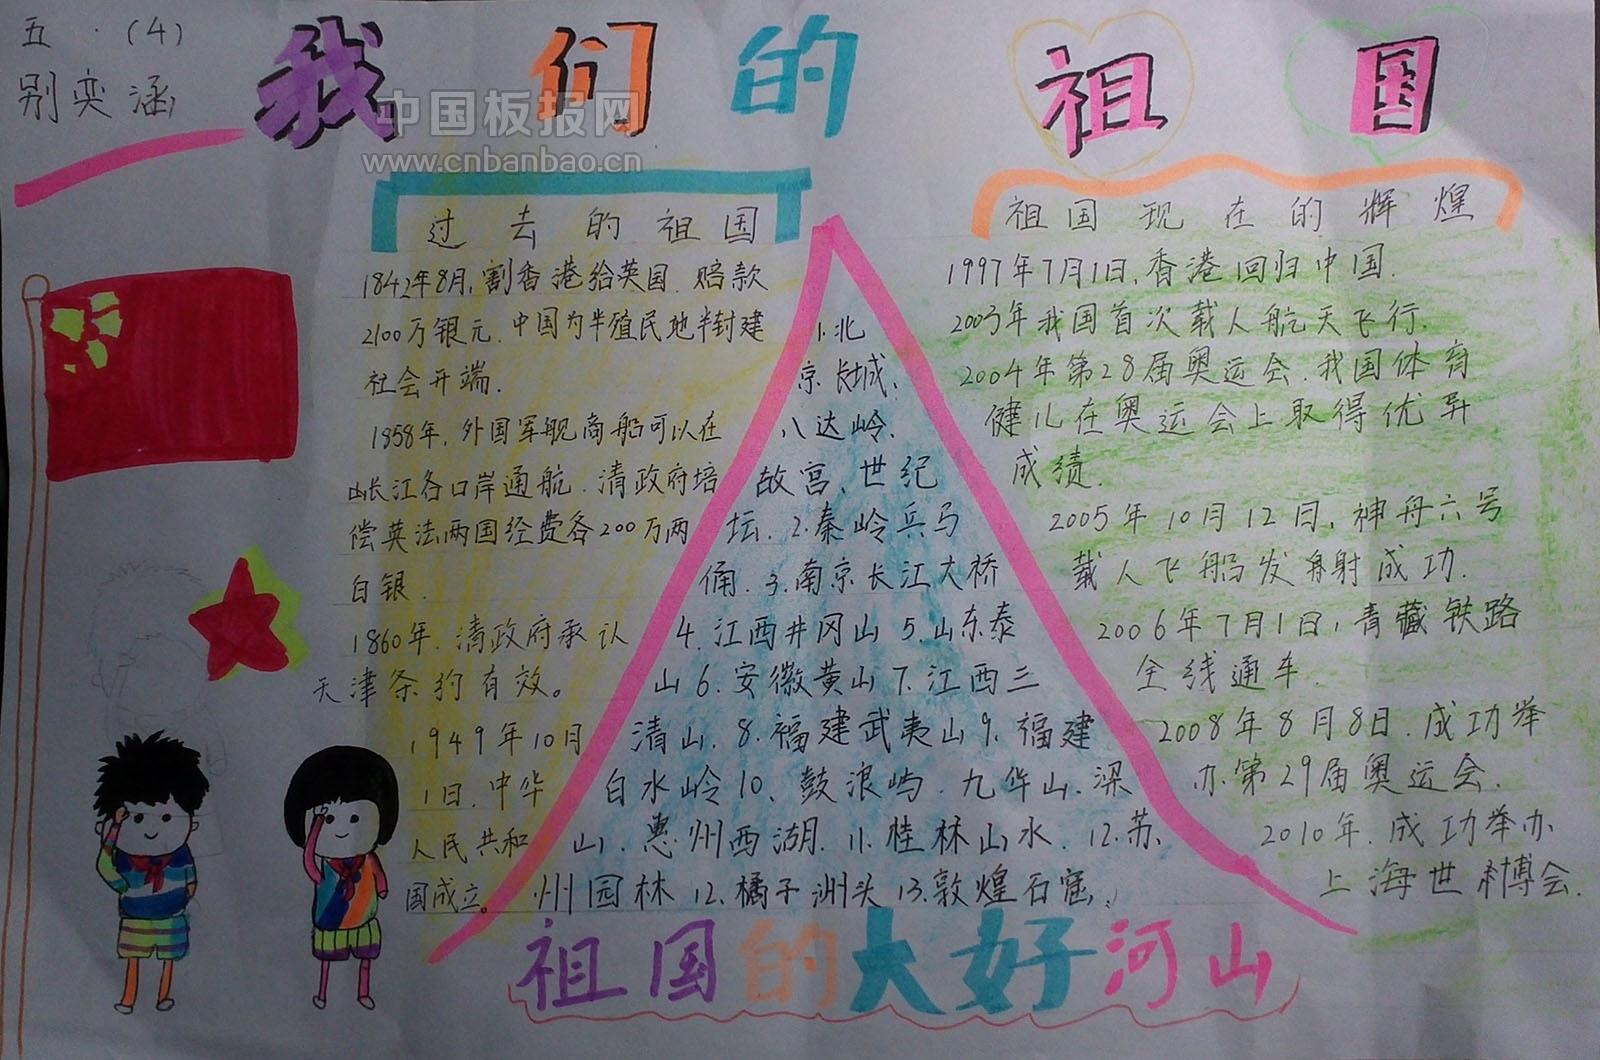 五.(4)
别奕涵
我们的祖国
中国板报网
www.cnbanbao.cn
过去的祖国
1842年8月,割香港给英国.赔款
2100万银元.中国为半殖民地半封建
社会开端.
1858年,外国军舰商船可以在
长江各口岸通航.清政府培
偿英法两国经费各200万两
白银.
1860年.清政府承认
天津条约有效。
1949年10月
1日.中华
人民共和
国成立。
1.北
京长城、
八达岭、
故宫、世纪
坛.2.秦岭兵马
俑.3.南京长江大桥
4.江西井冈山5.山东泰
山6.安徽黄山7.江西三
清山.8.福建武夷山9.福建
白水岭10、鼓浪屿.九华山.梁
山.惠州西湖.11.桂林山水.12.苏
州园林12.橘子洲头13.敦煌石窟.
祖国的大好河山
祖国现在的辉煌
1997年7月1日,香港回归中国.
2003年我国首次载人航天飞行.
2004年第28届奥运会.我国体育
健儿在奥运会上取得优异
成绩.
2005年10月12日,神舟六号
载人飞船发射成功.
2006年7月1日,青藏铁路
全线通车.
2008年8月8日.成功举
办第29届奥运会.
2010年.成功举办
上海世博会.